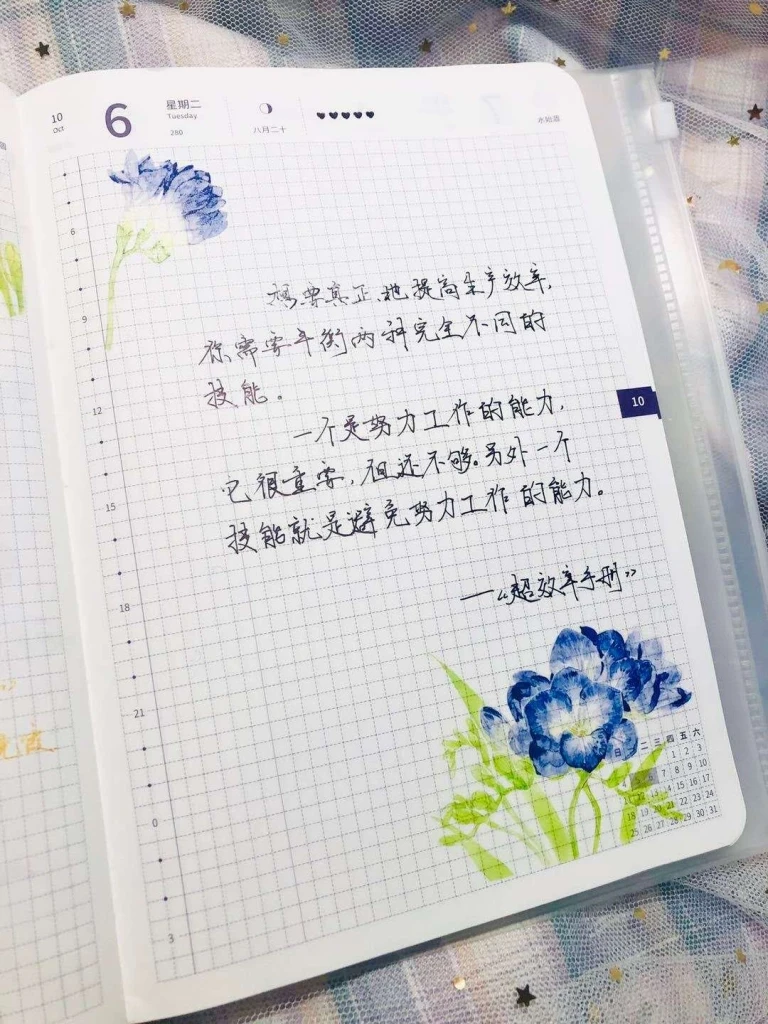 10
Oct
6
星期二
Tuesday
280
八月二十
水始涸
6
9
12
15
18
21
0
3
想要真正地提高生产效率，
你需要平衡两种完全不同的
技能。
一个是努力工作的能力，
它很重要，但还不够。另外一个
技能就是避免努力工作的能力。
——《超效率手册》
10
日 二 三 四 五 六
1 2 3
7 8 9 10
14 15 16 17
18 19 20 21 22 23 24
25 26 27 28 29 30 31